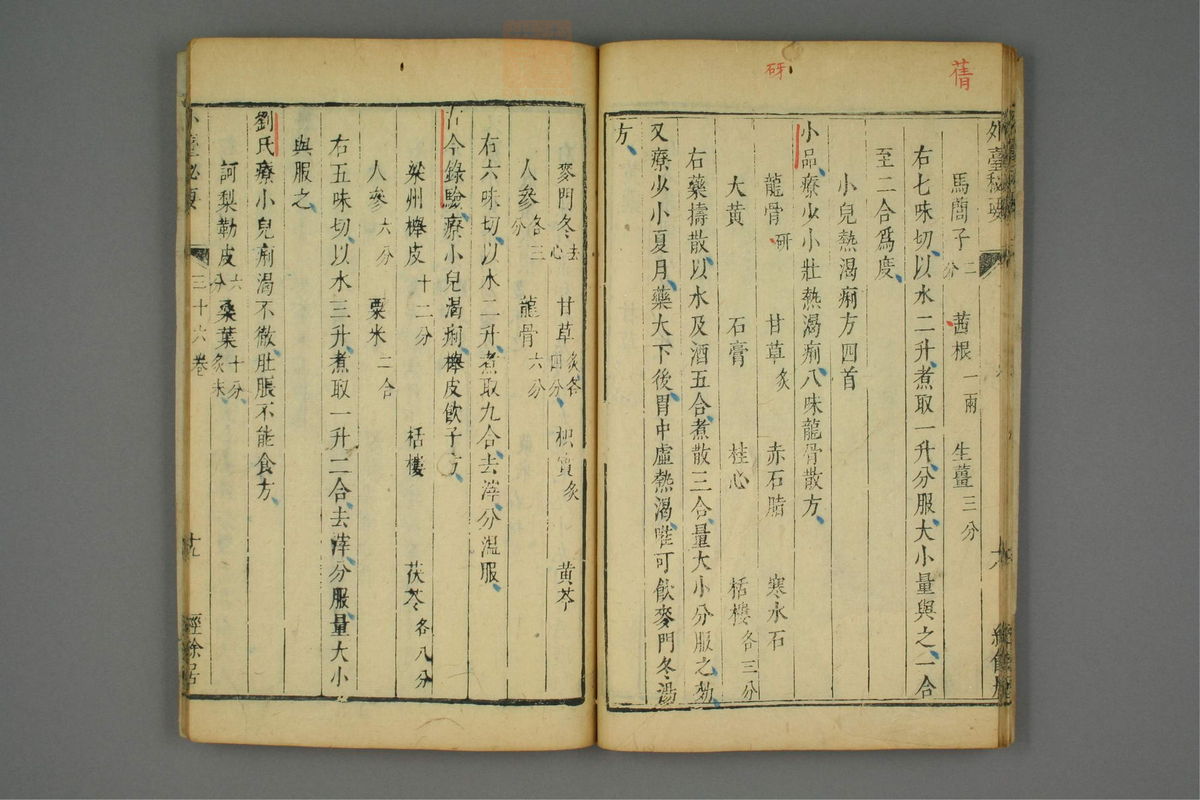 蒨
砑
外臺秘要
馬藺子二分 茜根一兩 生薑三分
右七味切以水二升煮取一升分服大小量與之一合
至二合爲度
小兒熱渴痢方四首
小品療少小壯熱渴痢八味龍骨散方
龍骨研 甘草炙 赤石脂 寒水石
大黃 石膏 桂心 栝樓各三分
右藥擣散以水及酒五合煮散三合量大小分服之効
又療少小夏月藥大下後胃中虛熱渴唯可飲麥門冬湯
方
麥門冬去心 甘草炙各四分 枳實炙 黃芩
人參各三分 龍骨六分
右六味切以水二升煮取九合去滓分溫服
古今錄驗療小兒渴痢櫸皮飲子方
梁州櫸皮十二分 栝樓 茯苓各八分
人參六分 粟米二合
右五味切以水三升煮取一升二合去滓分服量大小
與服之
劉氏療小兒痢渴不徹肚脹不能食方
訶梨勒皮六分 桑葉十分炙末
三十六卷 十九 經餘居